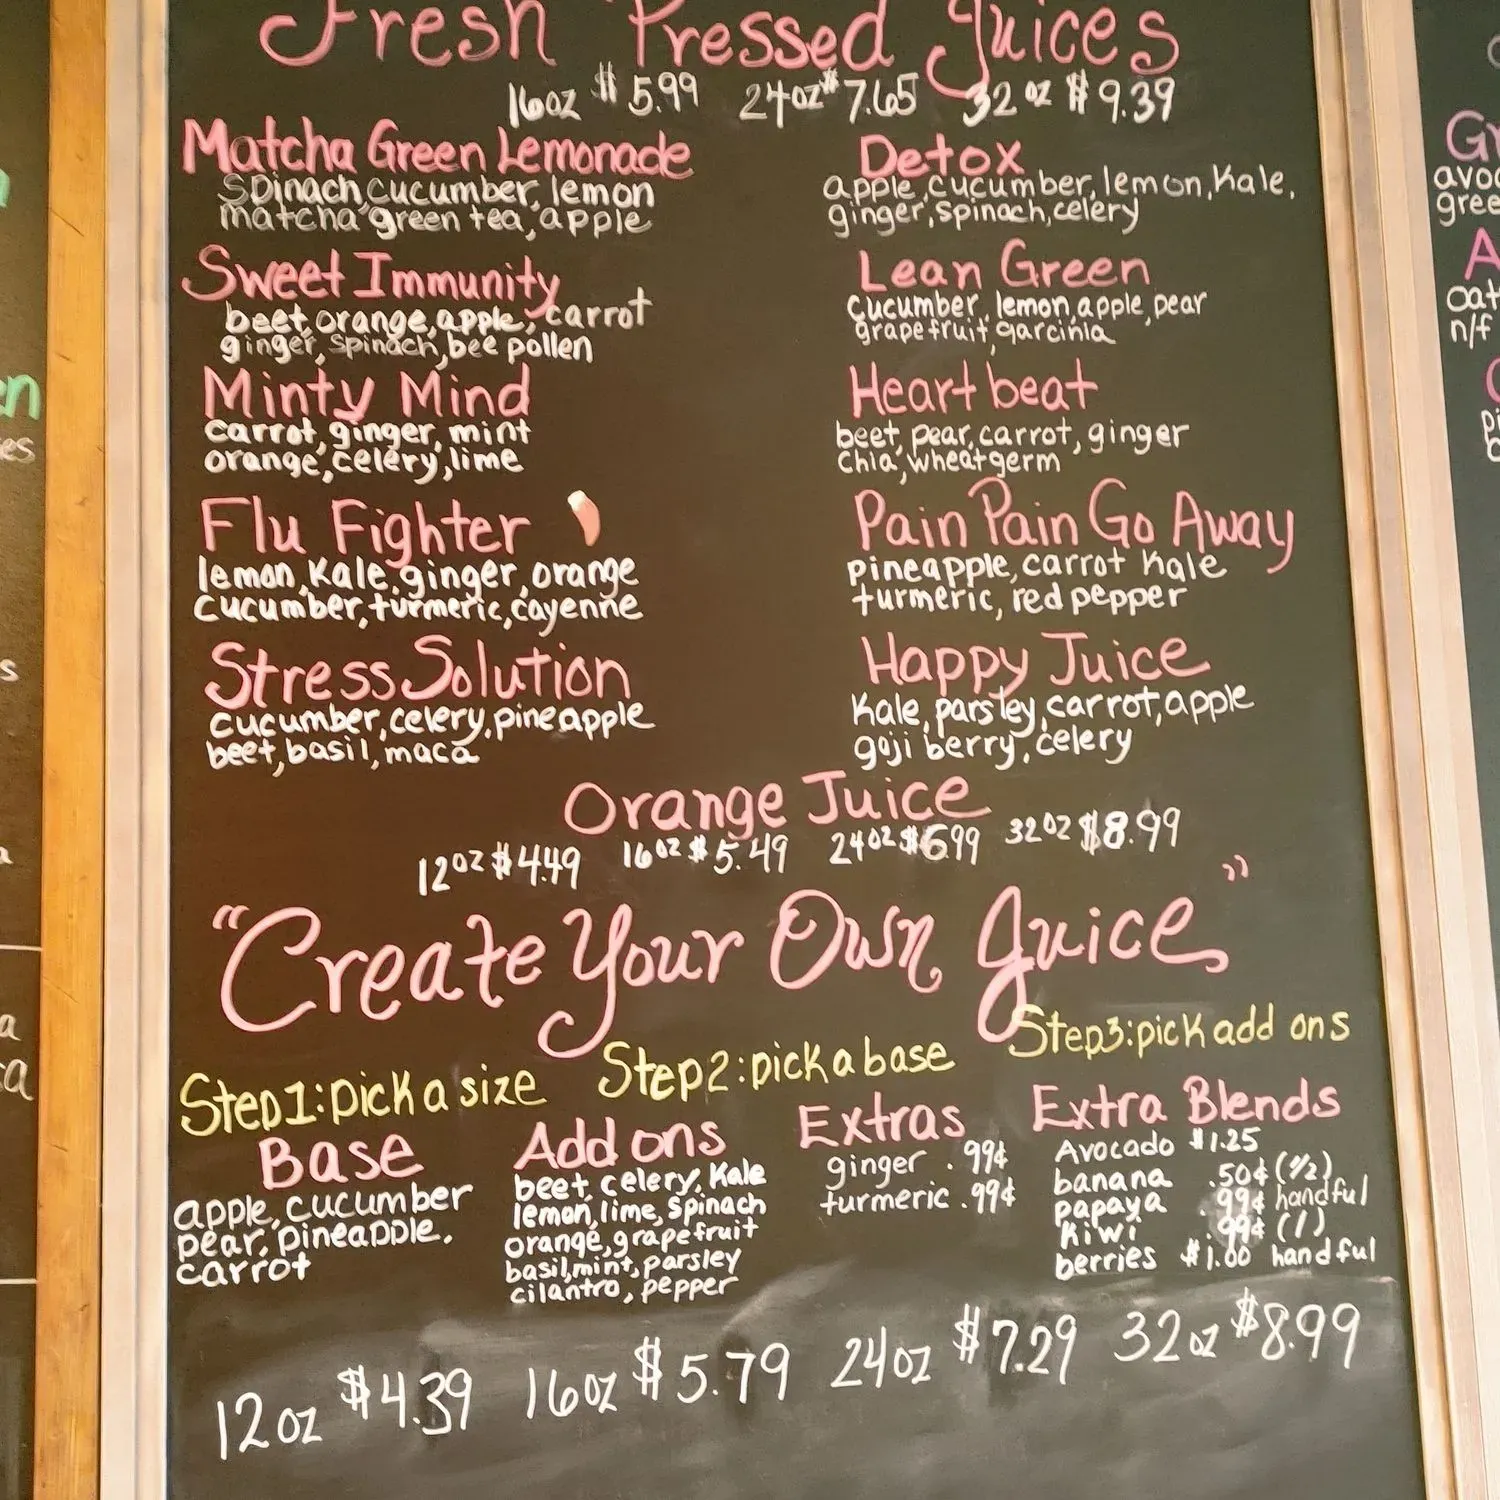 Fresh Pressed Juices
16oz $5.99 24oz $7.65 32oz $9.39
Matcha Green Lemonade
Spinach, cucumber, lemon
matcha green tea, apple
Sweet Immunity
beet, orange, apple, carrot
ginger, spinach, bee pollen
Minty Mind
carrot, ginger, mint
orange, celery, lime
Flu Fighter
lemon, Kale, ginger, orange
cucumber, turmeric, cayenne
Stress Solution
cucumber, celery, pineapple
beet, basil, maca
Detox
apple, cucumber, lemon, Kale,
ginger, spinach, celery
Lean Green
cucumber, lemon, apple, pear
grapefruit, garcinia
Heart beat
beet, pear, carrot, ginger
chia, wheatgerm
Pain Pain Go Away
pineapple, carrot Kale
turmeric, red pepper
Happy Juice
Kale, parsley, carrot, apple
goji berry, celery
Orange Juice
12oz $4.49 16oz $5.49 24oz $6.99 32oz $8.99
"Create Your Own Juice"
Step1: pick a size Step2: pick a base Step3: pick add ons
Base
apple, cucumber
pear, pineapple,
carrot
Add ons
beet, celery, Kale
lemon, lime, spinach
orange, grapefruit
basil, mint, parsley
cilantro, pepper
Extras
ginger .99¢
turmeric .99¢
Extra Blends
Avocado $1.25
banana .50¢ (1/2)
papaya .99¢ handful
Kiwi .99¢ (1)
berries $1.00 handful
12oz $4.39 16oz $5.79 24oz $7.29 32oz $8.99